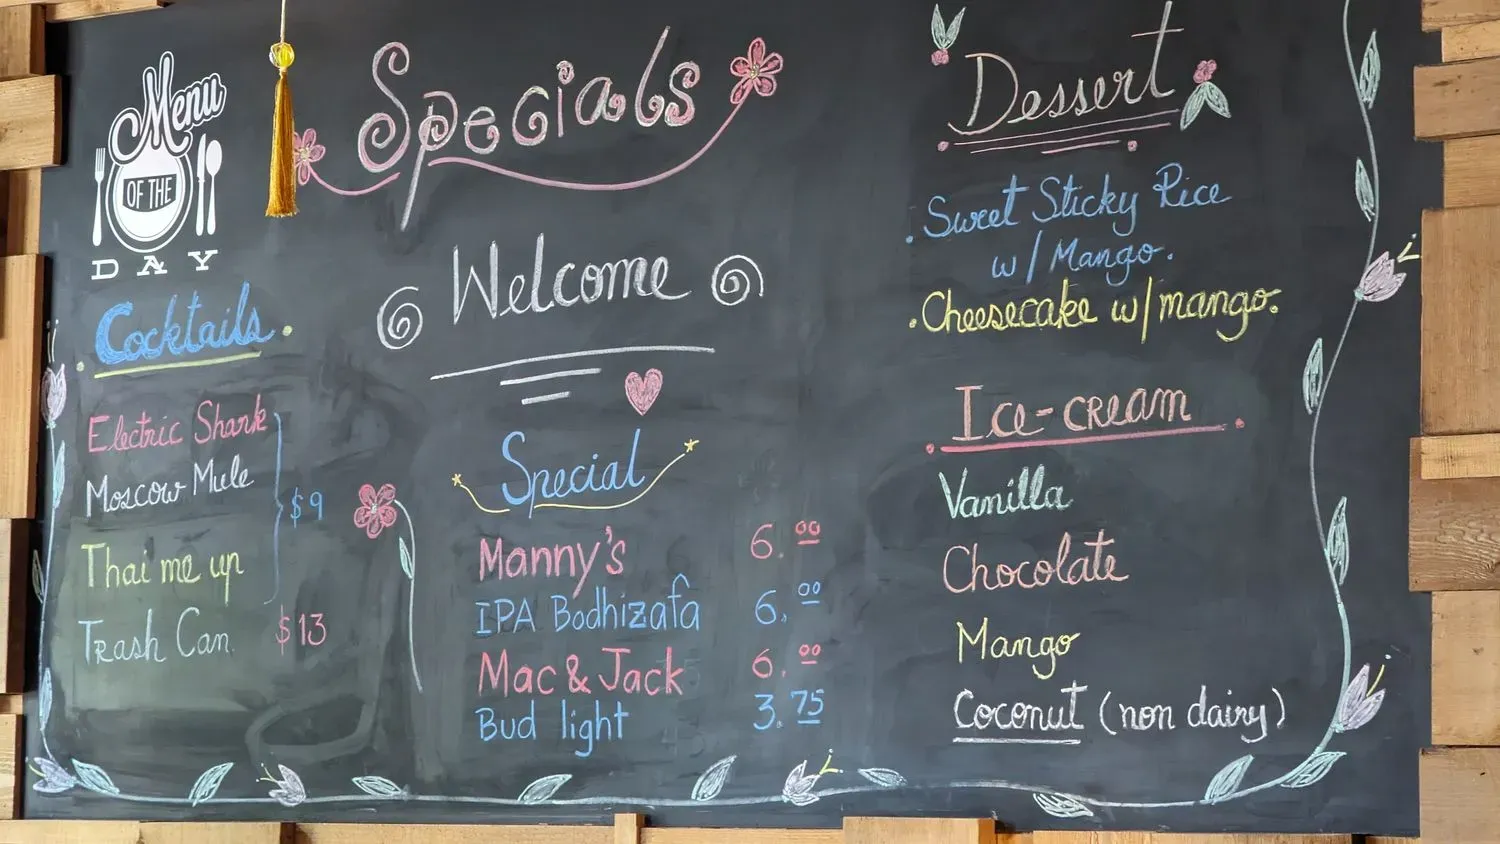 Menu
OF THE
DAY
Specials
Welcome
Cocktails
Electric Shark
Moscow Mule
$9
Thai me up
Trash Can $13
Special
Manny's 6.00
IPA Bodhizafa 6.00
Mac & Jack 6.00
Bud light 3.75
Dessert
Sweet Sticky Rice
w/ Mango.
Cheesecake w/mango.
Ice-cream
Vanilla
Chocolate
Mango
Coconut (non dairy)